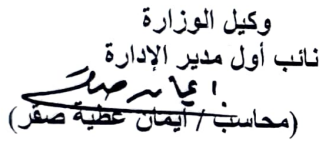 وكيل الوزارة
نائب أول مدير الإدارة
(محاسب / ايمان عطية صقر)